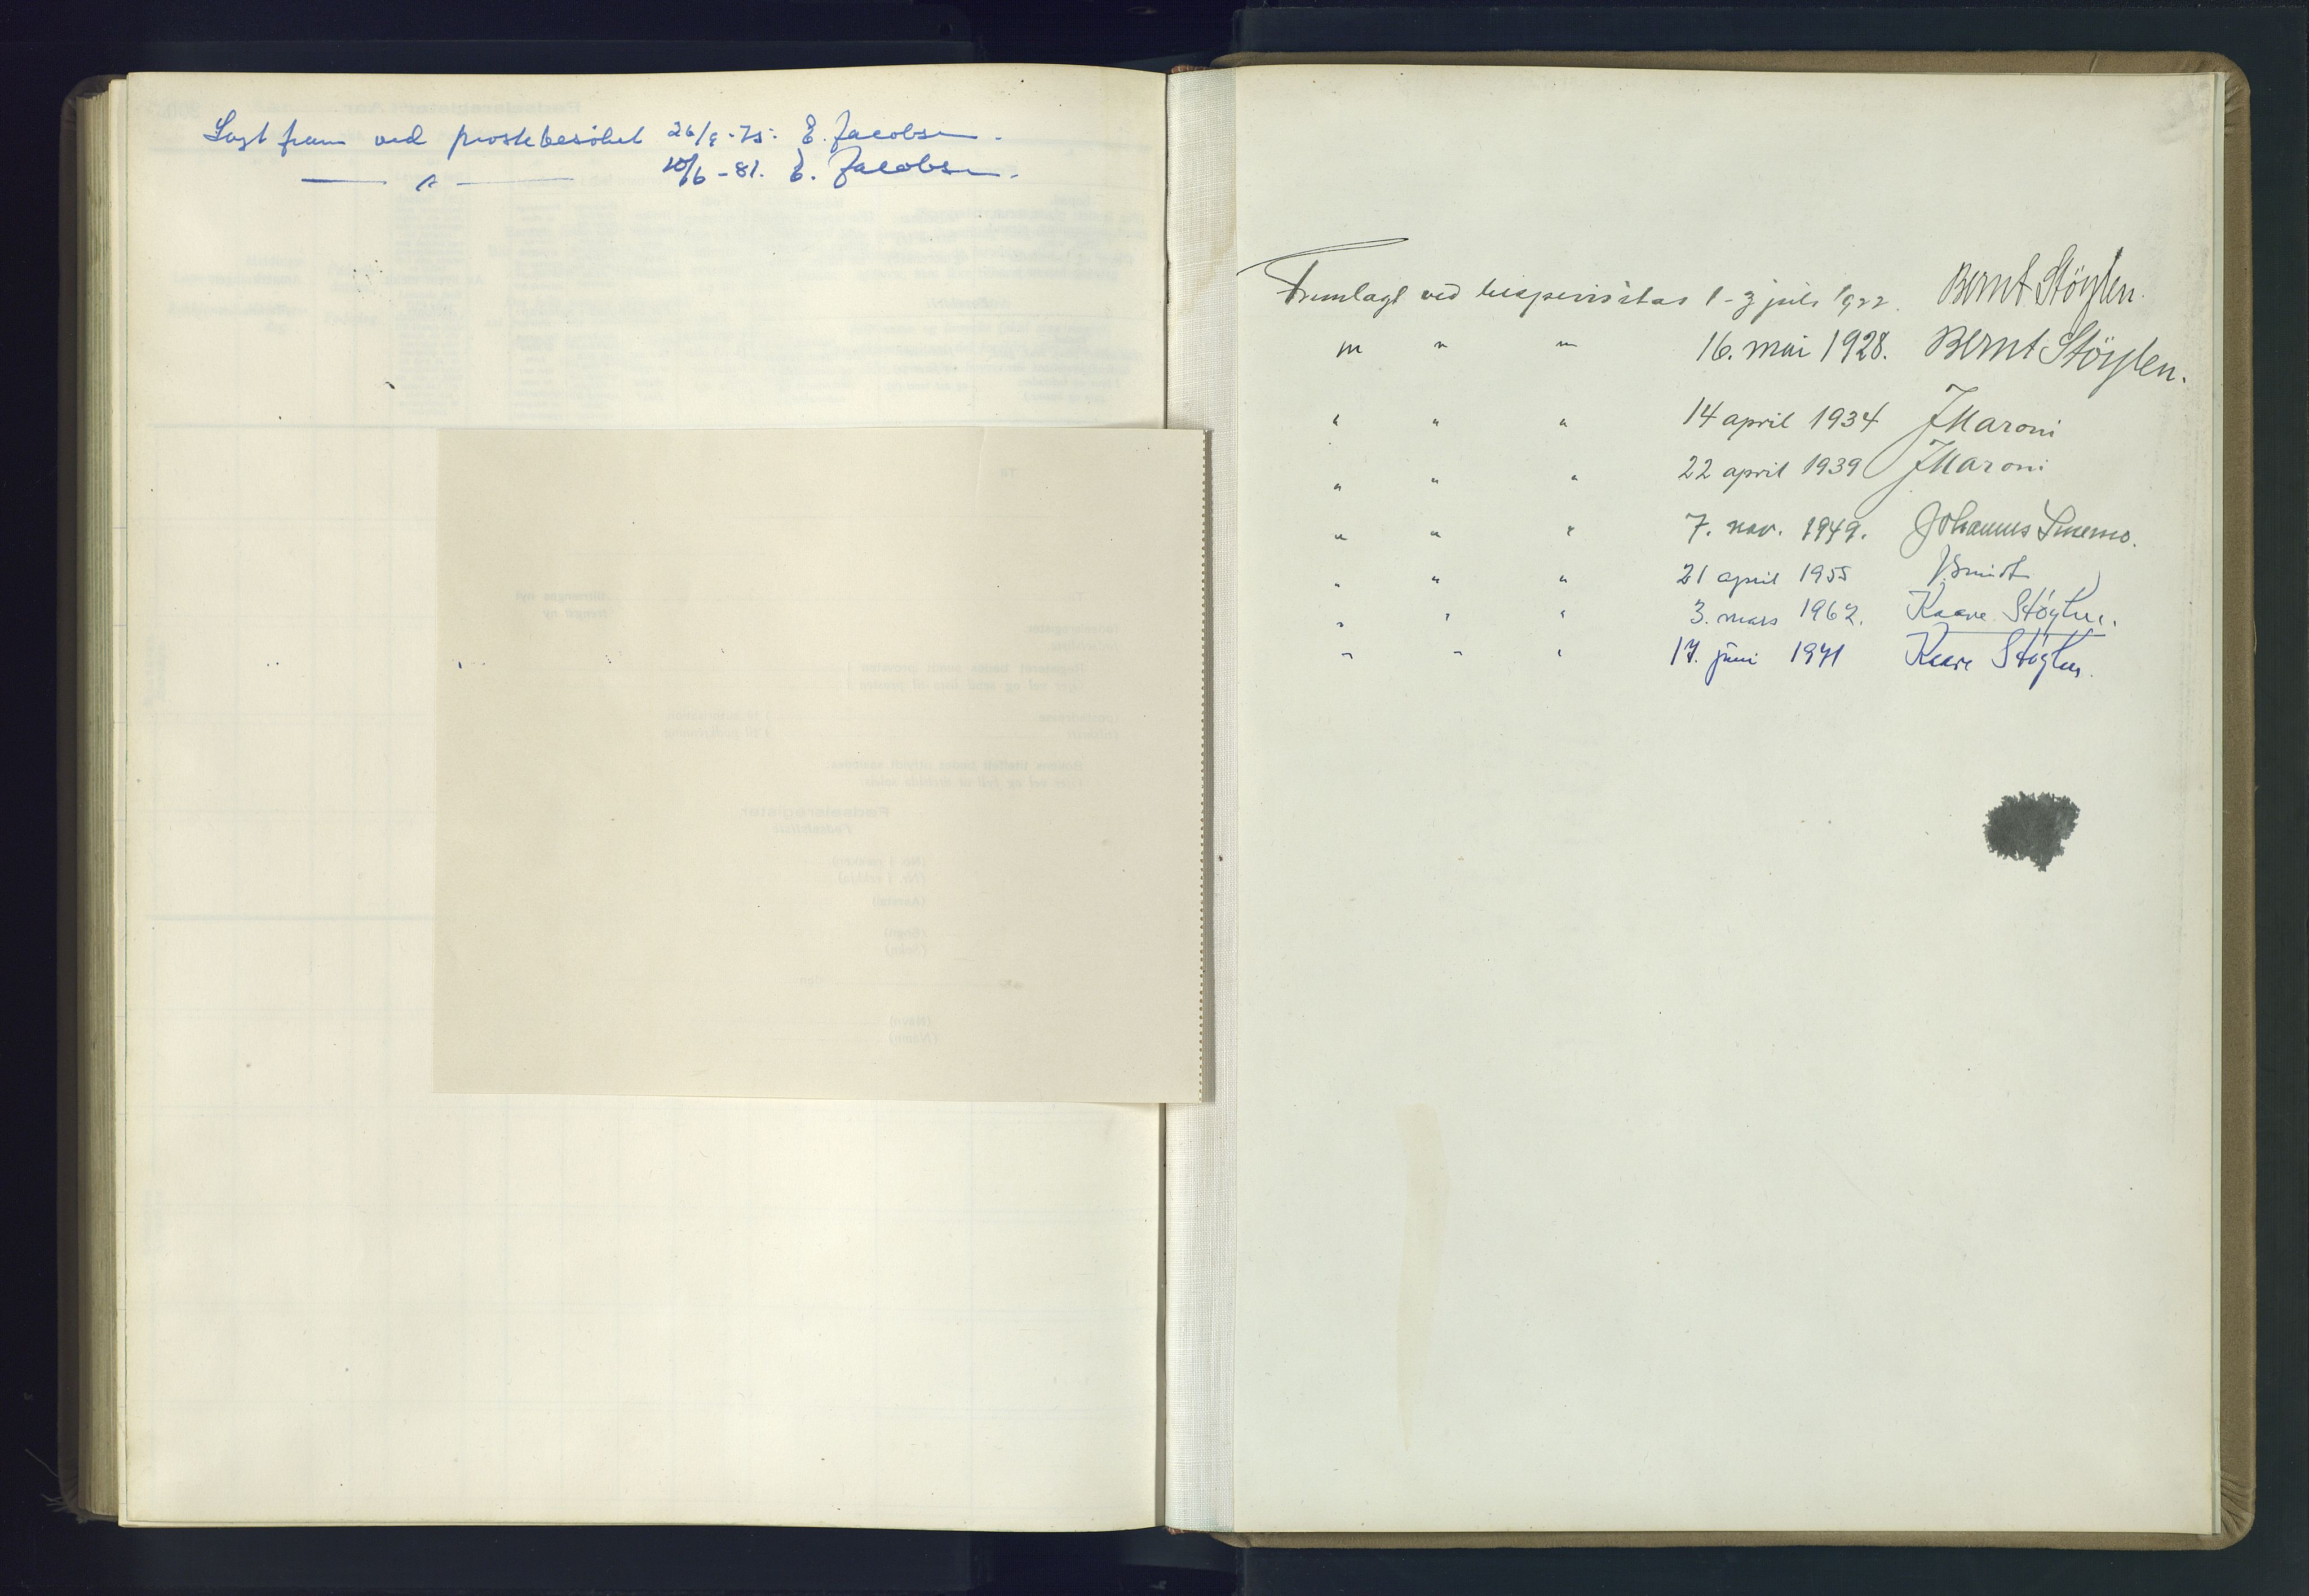 Lagt fram ved prostebesöket 26/5-75. E. Jacobsen.
— " — 10/6-81. E. Jacobsen.
Fremlagt ved bispevisitas 1-3 juli 1922. Bernt Støylen.
" " " 16. mai 1928. Bernt Støylen.
" " " 14 april 1934 J Maroni
" " " 22 april 1939 J Maroni
" " " 7. nov. 1949. Johannes Smemo.
" " " 21 april 1955 J Smidt
" " " 3. mars 1962. Kaare Støylen.
" " " 17. juni 1971 Kaare Støylen.